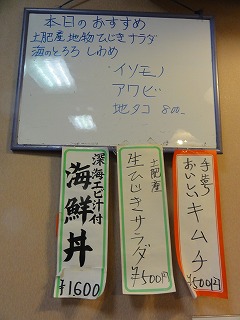 本日のおすすめ
土肥産地物ひじきサラダ
海のとろろ しわめ
イソモノ
アワビ
地タコ 800-
深海エビ汁付
海鮮丼
¥1600
土肥産
生ひじきサラダ
¥500円
おいしいキムチ
¥500円